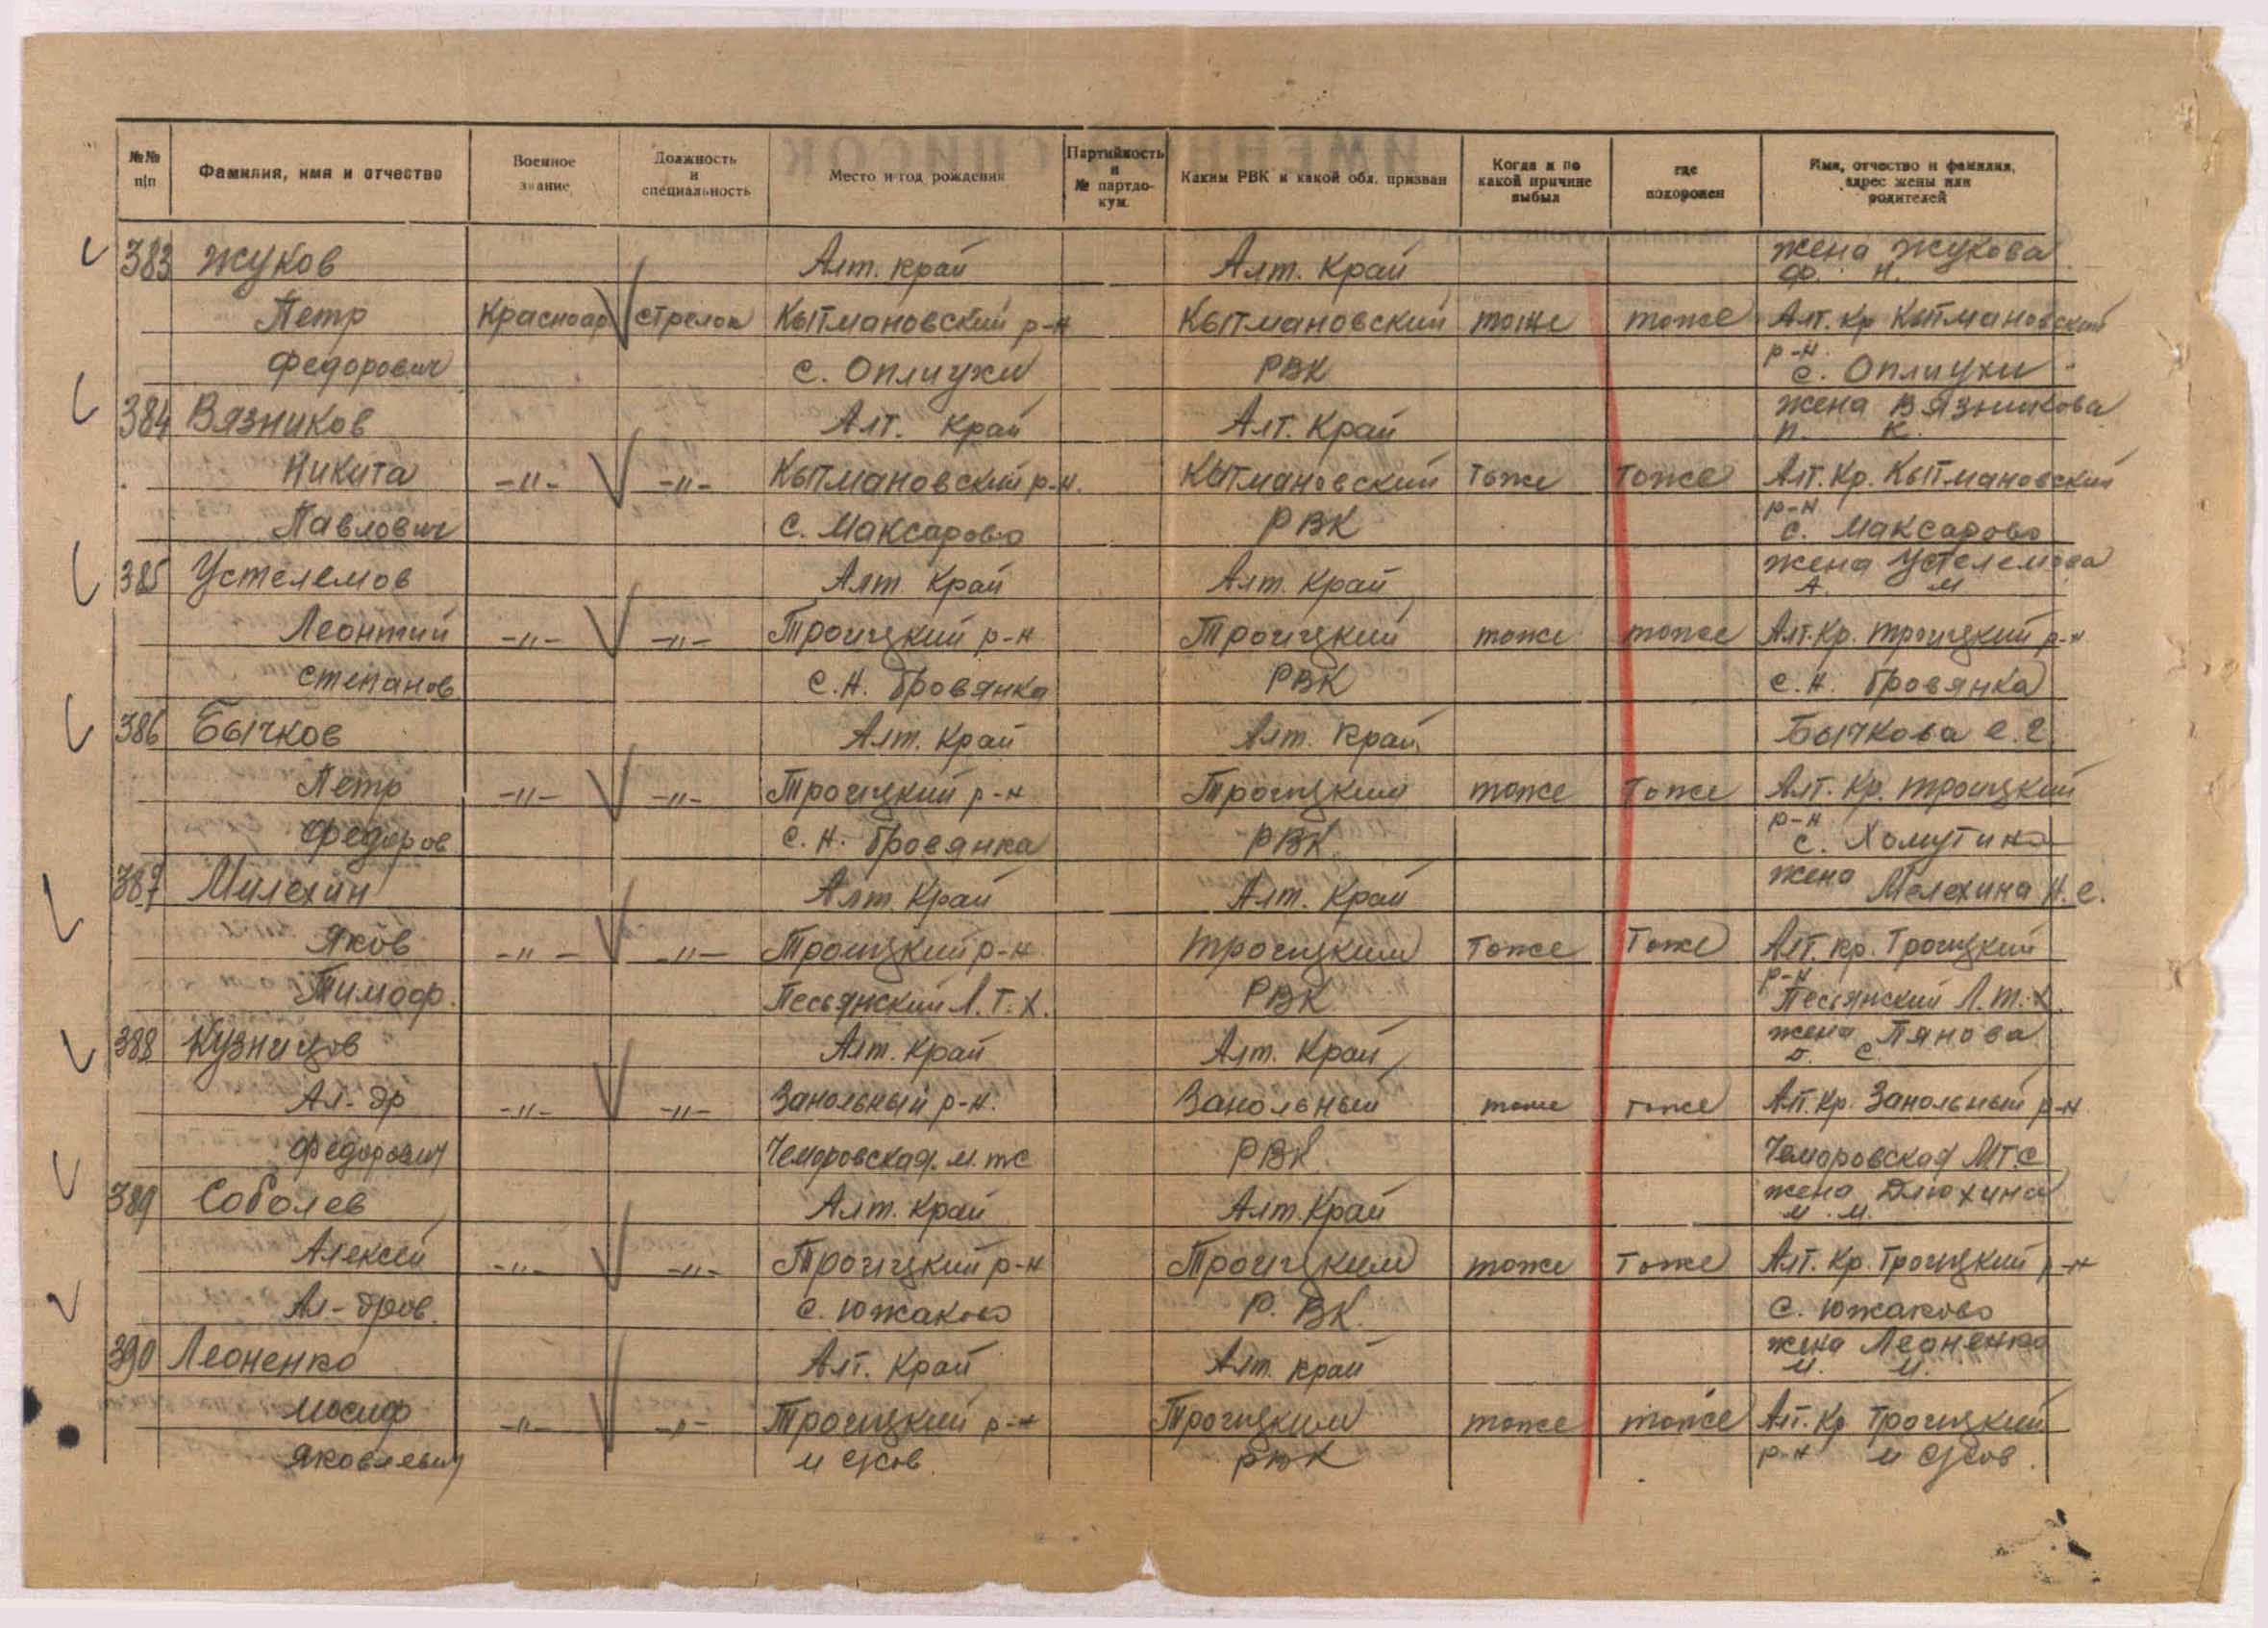 №№ п/п
Фамилия, имя и отчество
Военное звание
Должность и специальность
Место и год рождения
Партийность и № партдокум.
Каким РВК и какой обл. призван
Когда и по какой причине выбыл
где похоронен
Имя, отчество и фамилия, адрес жены или родителей
383 Жуков Алт. край Алт. Край жена Жукова
Ф. Н.
Петр Красноар стрелок Кытмановский р-н Кытмановский тоже тоже Алт. Кр Кытмановский
Федорович с. Оплиухи РВК р-н с. Оплиухи
384 Вязников Алт. Край Алт. Край жена Вязникова
П. К.
Никита -"- -"- Кытмановский р-н. Кытмановский Тоже Тоже Алт. Кр. Кытмановский
Павлович с. Максарово РВК р-н с. Максарово
385 Устелемов Алт Край Алт. Край жена Устелемова
А. М
Леонтий -"- -"- Троицкий р-н Троицкий тоже тоже Алт. Кр. Троицкий р-н
Степанов с. Н. Бровянка РВК с. Н. Бровянка
386 Бычков Алт. Край Алт. Край Бычкова Е. Е.
Петр -"- -"- Троицкий р-н Троицким тоже Тоже Алт. Кр. Троицкий
Федоров с. Н. Бровянка РВК р-н с. Хомутино
387 Милехин Алт. Край Алт. Край жена Мелехина Н. С.
Яков -"- -"- Троицкий р-н Троицким Тоже Тоже Алт. кр. Троицкий
Тимоф. Песьянский Л. Т. Х. РВК р-н Песьянский Л. Т. Х.
388 Кузницов Алт. Край Алт. Край жена Пянова
С.
Ал-др -"- -"- Занольный р-н. Занольный тоже тоже Алт. Кр. Занольный р-н
Федорович Чемровская. М. тс РВК Чемровская МТС
389 Соболев Алт. Край Алт. Край жена Длюхина
М. М.
Алексей -"- -"- Троицкий р-н Троицким тоже Тоже Алт. Кр. Троицкий р-н
Ал-дров. с. Южаково Р. ВК. с. Южаково
390 Леоненко Алт. Край Алт. край жена Леоненко
М. И.
Иосиф -"- -"- Троицкий р-н Троицким тоже тоже Алт. Кр Троицкий
Яковлевич РВК р-н